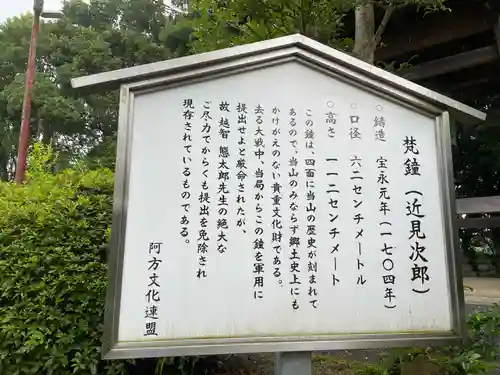 梵鐘(近見次郎)
○鋳造 宝永元年(一七〇四年)
○口径 六二センチメートル
○高さ 一一二センチメートル
この鐘は、四面に当山の歴史が刻まれて
あるので、当山のみならず郷土史上にも
かけがえのない貴重文化財である。
去る大戦中、当局からこの鐘を軍用に
提出せよと厳命されたが、
故 越智 熊太郎先生の絶大な
ご尽力でからくも提出を免除され
現存されているものである。
阿方文化連盟